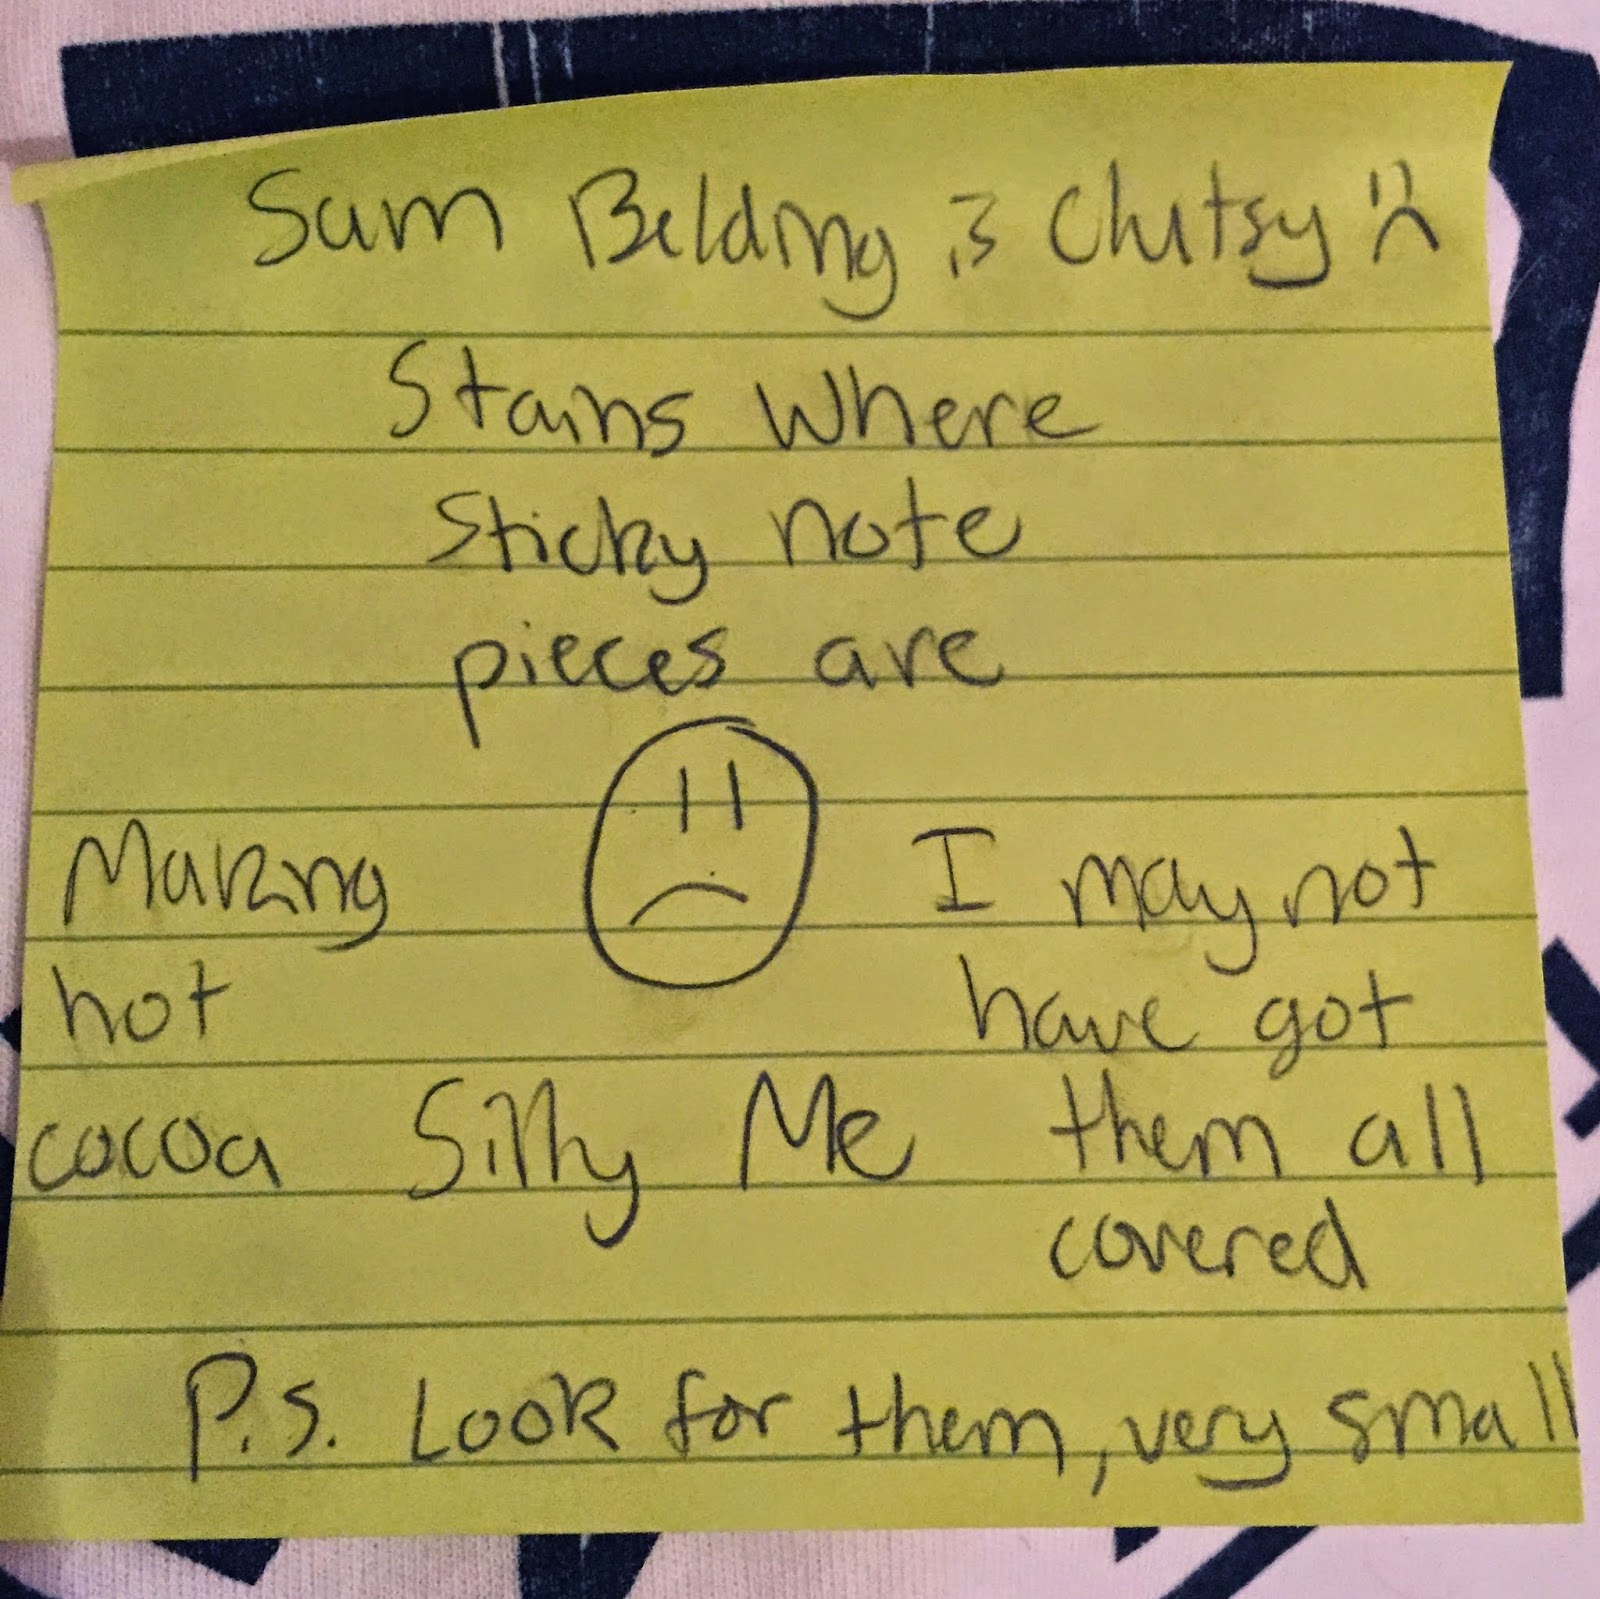 Sam Belding is Clutsy :(
Stains where
Sticky note
pieces are
Making
hot
cocoa
Silly Me
I may not
have got
them all
covered
P.S. Look for them, very small